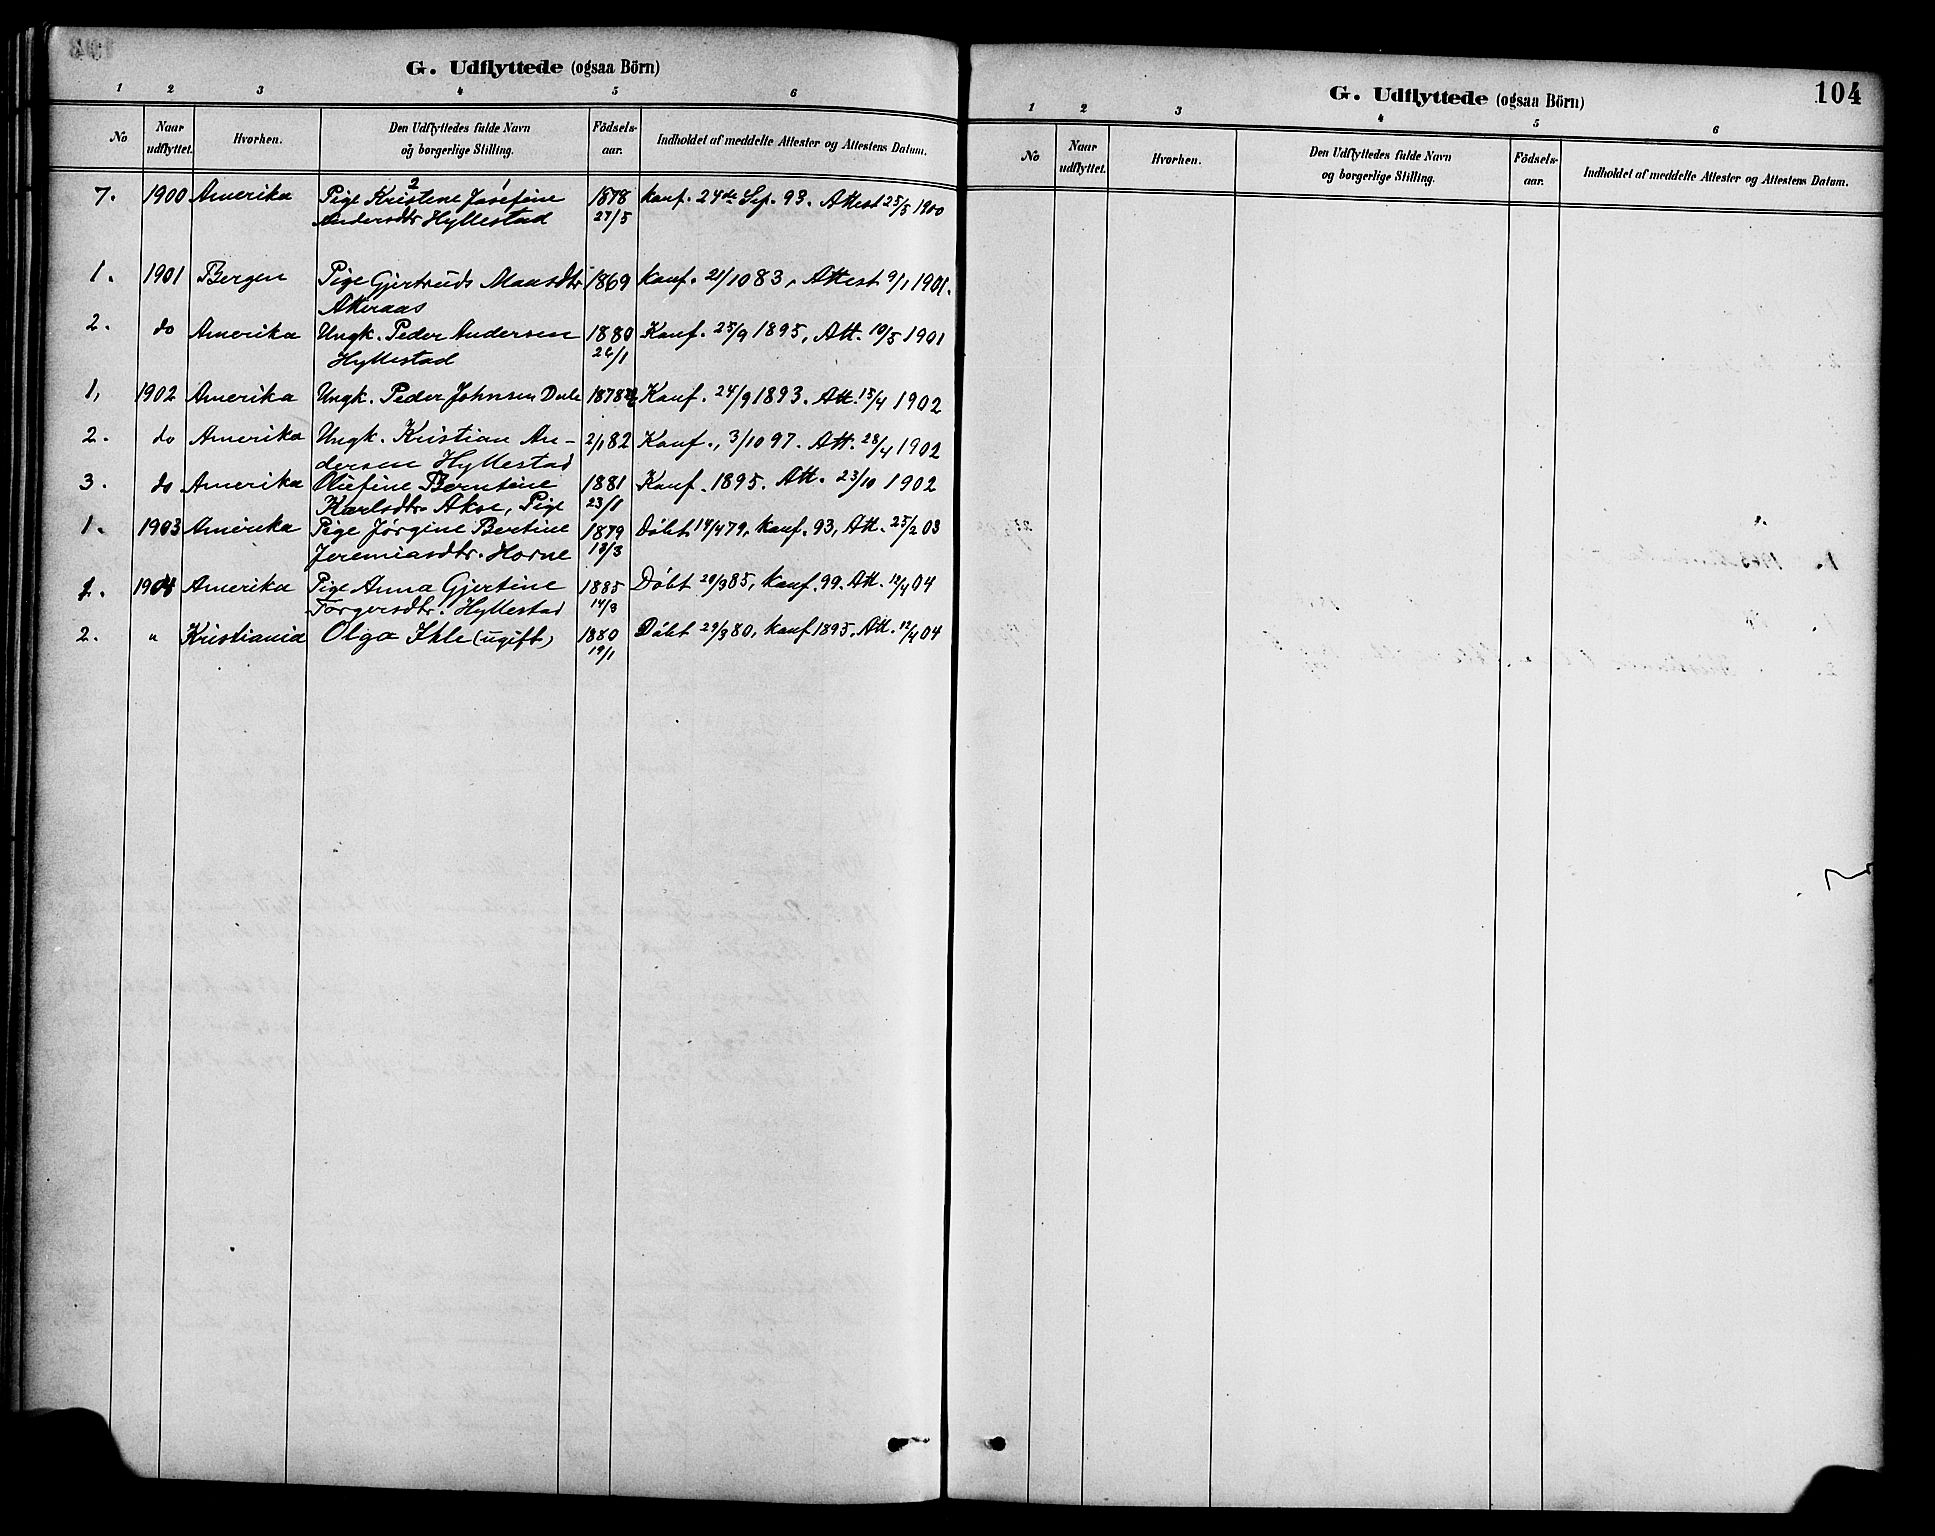 G. Udflyttede (ogsaa Börn)
1 2 3 4 5 6
No Naar udflyttet. Hvorhen. Den Udflyttedes fulde Navn og borgerlige Stilling. Födsels-aar. Indholdet af meddelte Attester og Attestens Datum.
7. 1900 Amerika Pige Kristene Josefine 1878 Konf. 24de Sep. 93. Attest 25/5 1900
Andersdtr Hyllestad 27/5
1. 1901 Bergen Pige Gjertruds Monsdtr 1869 Konf. 21/10 83, Attest 9/1 1901.
Atteraas
2. do Amerika Ungk. Peder Andersen 1880 Konf. 25/9 1895, Att. 10/5 1901
Hyllestad 26/1
1, 1902 Amerika Ungk. Peder Johnsen 1878 Konf. 24/9 1893. Att. 15/4 1902
2. do Amerika Ungk. Kristian An- 2/1 82 Konf., 3/10 97. Att. 28/4 1902
dersen Hyllestad
3. do Amerika Oliefine Berntine 1881 Konf. 1895. Att. 23/10 1902
Karlsdtr Akse, Pige 23/1
1. 1903 Amerika Pige Jørgine Bertine 1879 Døbt 14/4 79, Konf. 93, Att. 25/2 03
Jeremiasdtr. Horne 18/3
1. 1904 Amerika Pige Anna Gjertine 1885 Døbt 20/9 85, Konf. 99. Att. 12/4 04
Torgersdtr. Hyllestad 14/3
2. " Kristiania Olga Ihle (ugift) 1880 Døbt 29/3 80, Konf 1895. Att. 12/4 04
19/1
G. Udflyttede (ogsaa Börn) 104
1 2 3 4 5 6
No Naar udflyttet. Hvorhen. Den Udflyttedes fulde Navn og borgerlige Stilling. Födsels-aar. Indholdet af meddelte Attester og Attestens Datum.